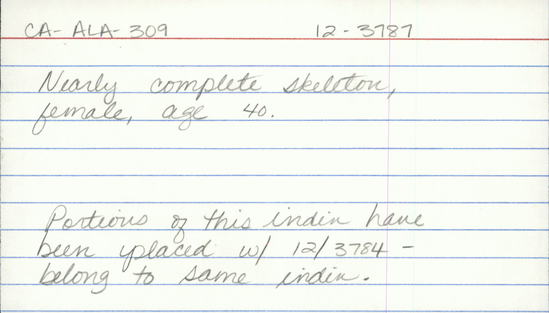 CA-ALA-309 12-3787
Nearly complete skeleton,
female, age 40.
Portions of this indiv have
been placed w/ 12/3784 -
belong to same indiv.